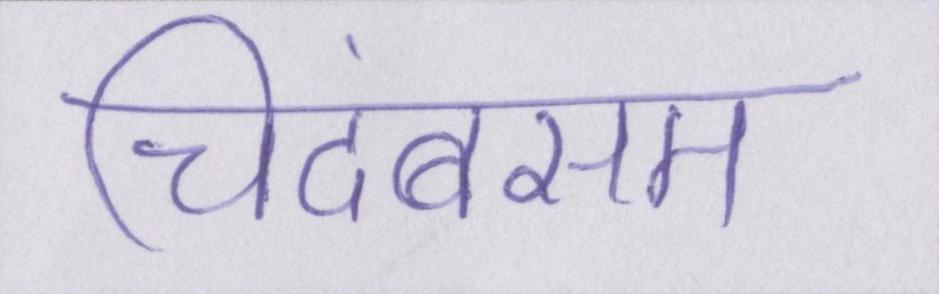 चिदंबसम